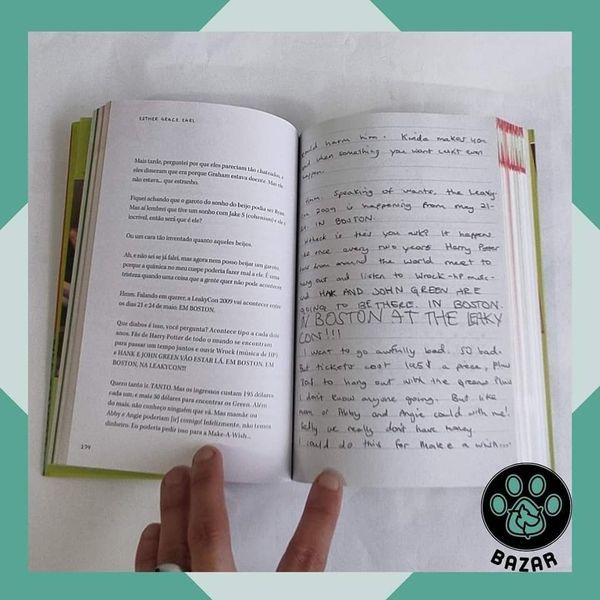 ESTHER GRACE EARL
Mais tarde, perguntei por que eles pareciam tão chateados, e
eles disseram que era porque Graham estava doente. Mas ele
não estava... que estranho.
Fiquei achando que o garoto do sonho do beijo podia ser
Mas aí lembrei que tive um sonho com Jake S e ele é
incrível, então será que é ele?
Ou um cara tão inventado quanto aqueles beijos.
Ah, e não sei se já falei, mas agora nem posso beijar um garoto,
porque a química no meu cuspe poderia fazer mal a ele. É uma
tristeza quando uma coisa que a gente quer não pode acontecer.
Hmm. Falando em querer, a LeakyCon 2009 vai acontecer entre
os dias 21 e 24 de maio. EM BOSTON.
Que diabos é isso, você pergunta? Acontece tipo a cada dois
anos. Fãs de Harry Potter de todo o mundo se encontram
para passar um tempo juntos e ouvir Wrock (música de HP)
e HANK E JOHN GREEN VÃO ESTAR LÁ. EM BOSTON, EM
BOSTON, NA LEAKYCON!!!
Quero tanto ir. TANTO. Mas os ingressos custam 195 dólares
cada um, e mais 50 dólares para encontrar os Green. Além
do mais, não conheço ninguém que vá. Mas mamãe ou
Abby e Angie poderiam [ir] comigo! Infelizmente, não temos
dinheiro. Eu poderia pedir isso para a Make-A-Wish...
294
could harm him. Kinda makes you
sad when something you want cant even
happen.
Hmm. Speaking of wants, the Leaky-
in 2009 is happening from may 21-
IN BOSTON.
is this you ask? It happens
once every two years. Harry Potter
from around the world meet to
hang out and listen to Wrock -HP music-
and HANK AND JOHN GREEN ARE
GOING TO BE THERE. IN BOSTON.
IN BOSTON AT THE LEAKY
CON!!!
I want to go awfully bad. SO bad.
But tickets cost a piece, plus
to hang out with the greens. Plus
I don't know anyone going. But like
mom or Abby and Angie could with me!
Sadly we really don't have money.
I could do this for make a wish...
BAZAR